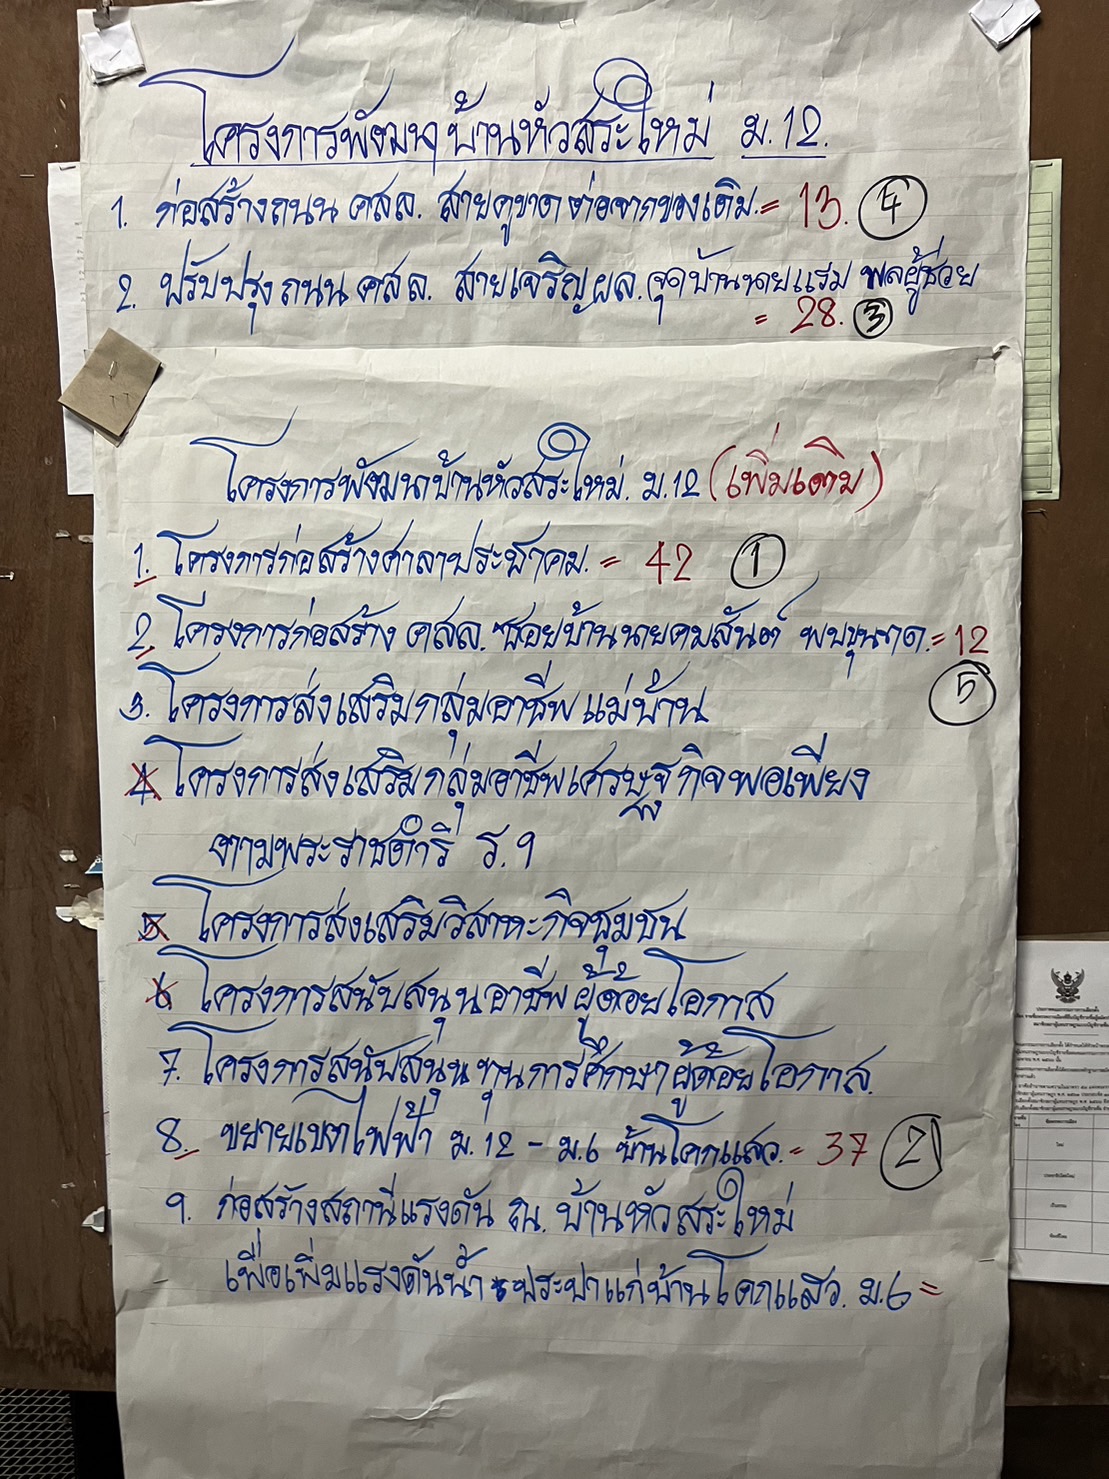 โครงการพัฒนาบ้านหัวสระใหม่ ม.12.
1. ก่อสร้างถนน คสล. สายคูขาด ต่อจากของเดิม.= 13. 4
2. ปรับปรุงถนน คสล. สายเจริญผล. จุดบ้านนายแรม พลผู้ช่วย
= 28. 3
โครงการพัฒนาบ้านหัวสระใหม่. ม.12 (เพิ่มเติม)
1. โครงการก่อสร้างศาลาประชาคม. = 42 1
2. โครงการก่อสร้าง คสล. ซอยบ้านนายคมสันต์ พบขุนทด.= 12
5
3. โครงการส่งเสริมกลุ่มอาชีพแม่บ้าน
4. โครงการส่งเสริมกลุ่มอาชีพเศรษฐกิจพอเพียง
ตามพระราชดำริ ร.9
5. โครงการส่งเสริมวิสาหะกิจชุมชน
6. โครงการสนับสนุนอาชีพผู้ด้อยโอกาส
7. โครงการสนับสนุนทุนการศึกษาผู้ด้อยโอกาส.
8. ขยายเขตไฟฟ้า ม.12 - ม.6 บ้านโคกแสว.= 37 2
9. ก่อสร้างสถานีแรงดัน ณ. บ้านหัวสระใหม่
เพื่อเพิ่มแรงดันน้ำ ประปาแก่บ้านโคกแสว. ม.6 =